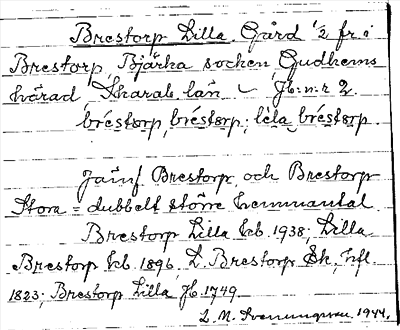 Brestorp Lilla. Gård 1/2 fr i
Brestorp, Bjärka socken, Gudhems
härad, Skarab. län – Jb:n:r 2.
bréstorp, bréstorp; lìla bréstorp.
Jämf. Brestorp, och Brestorp
Stora = dubbelt större hemmantal
Brestorp Lilla kb. 1938; Lilla
Brestorp kb 1896. L. Brestorp Sk, hfl.
1823; Brestorp Lilla Jb. 1749.
L. N. Svenungsson. 1944.